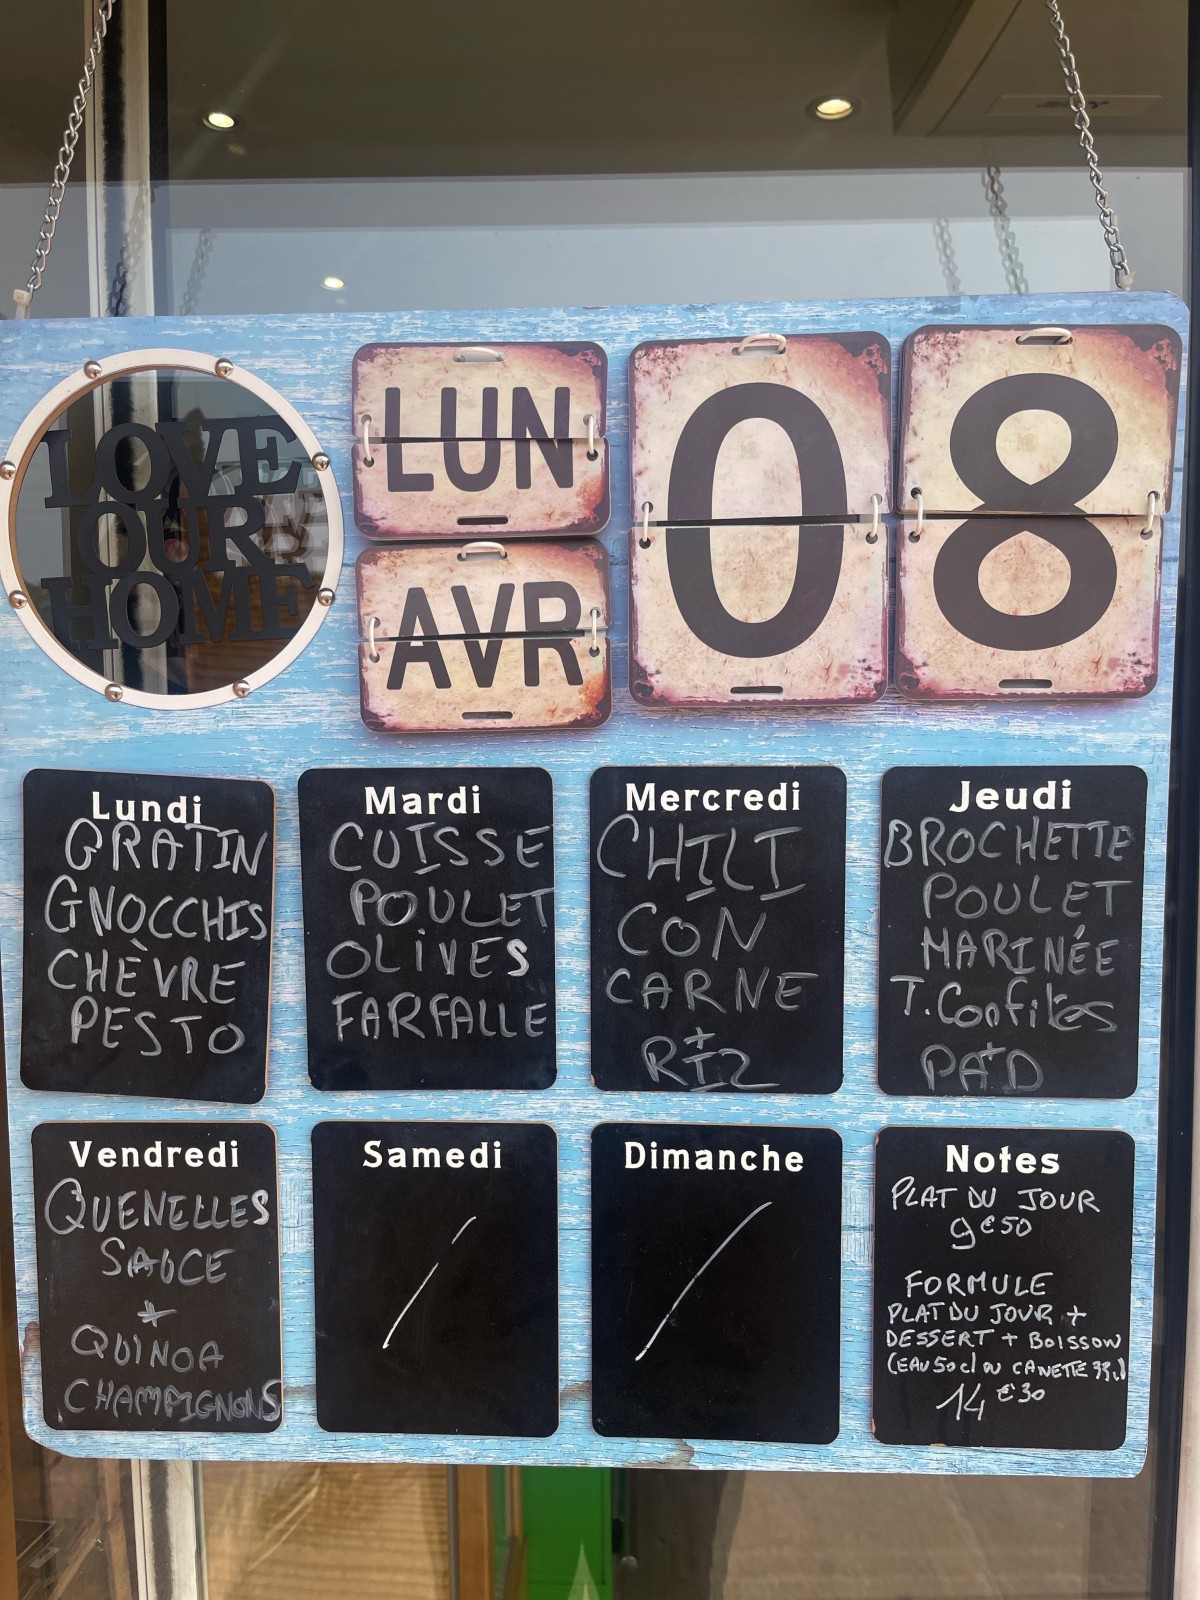 LOVE
OUR
HOME
LUN
AVR
08
Lundi
GRATIN
GNOCCHIS
CHÈVRE
PESTO
Mardi
CUISSE
POULET
OLIVES
FARFALLE
Mercredi
CHILI
CON
CARNE
+
RIZ
Jeudi
BROCHETTE
POULET
MARINÉE
T. Confites
+
PAD
Vendredi
QUENELLES
SAUCE
+
QUINOA
CHAMPIGNONS
Samedi
/
Dimanche
/
Notes
PLAT DU JOUR
9€50
FORMULE
PLAT DU JOUR +
DESSERT + BOISSON
(EAU 50cl ou CANETTE 33cl)
14€30